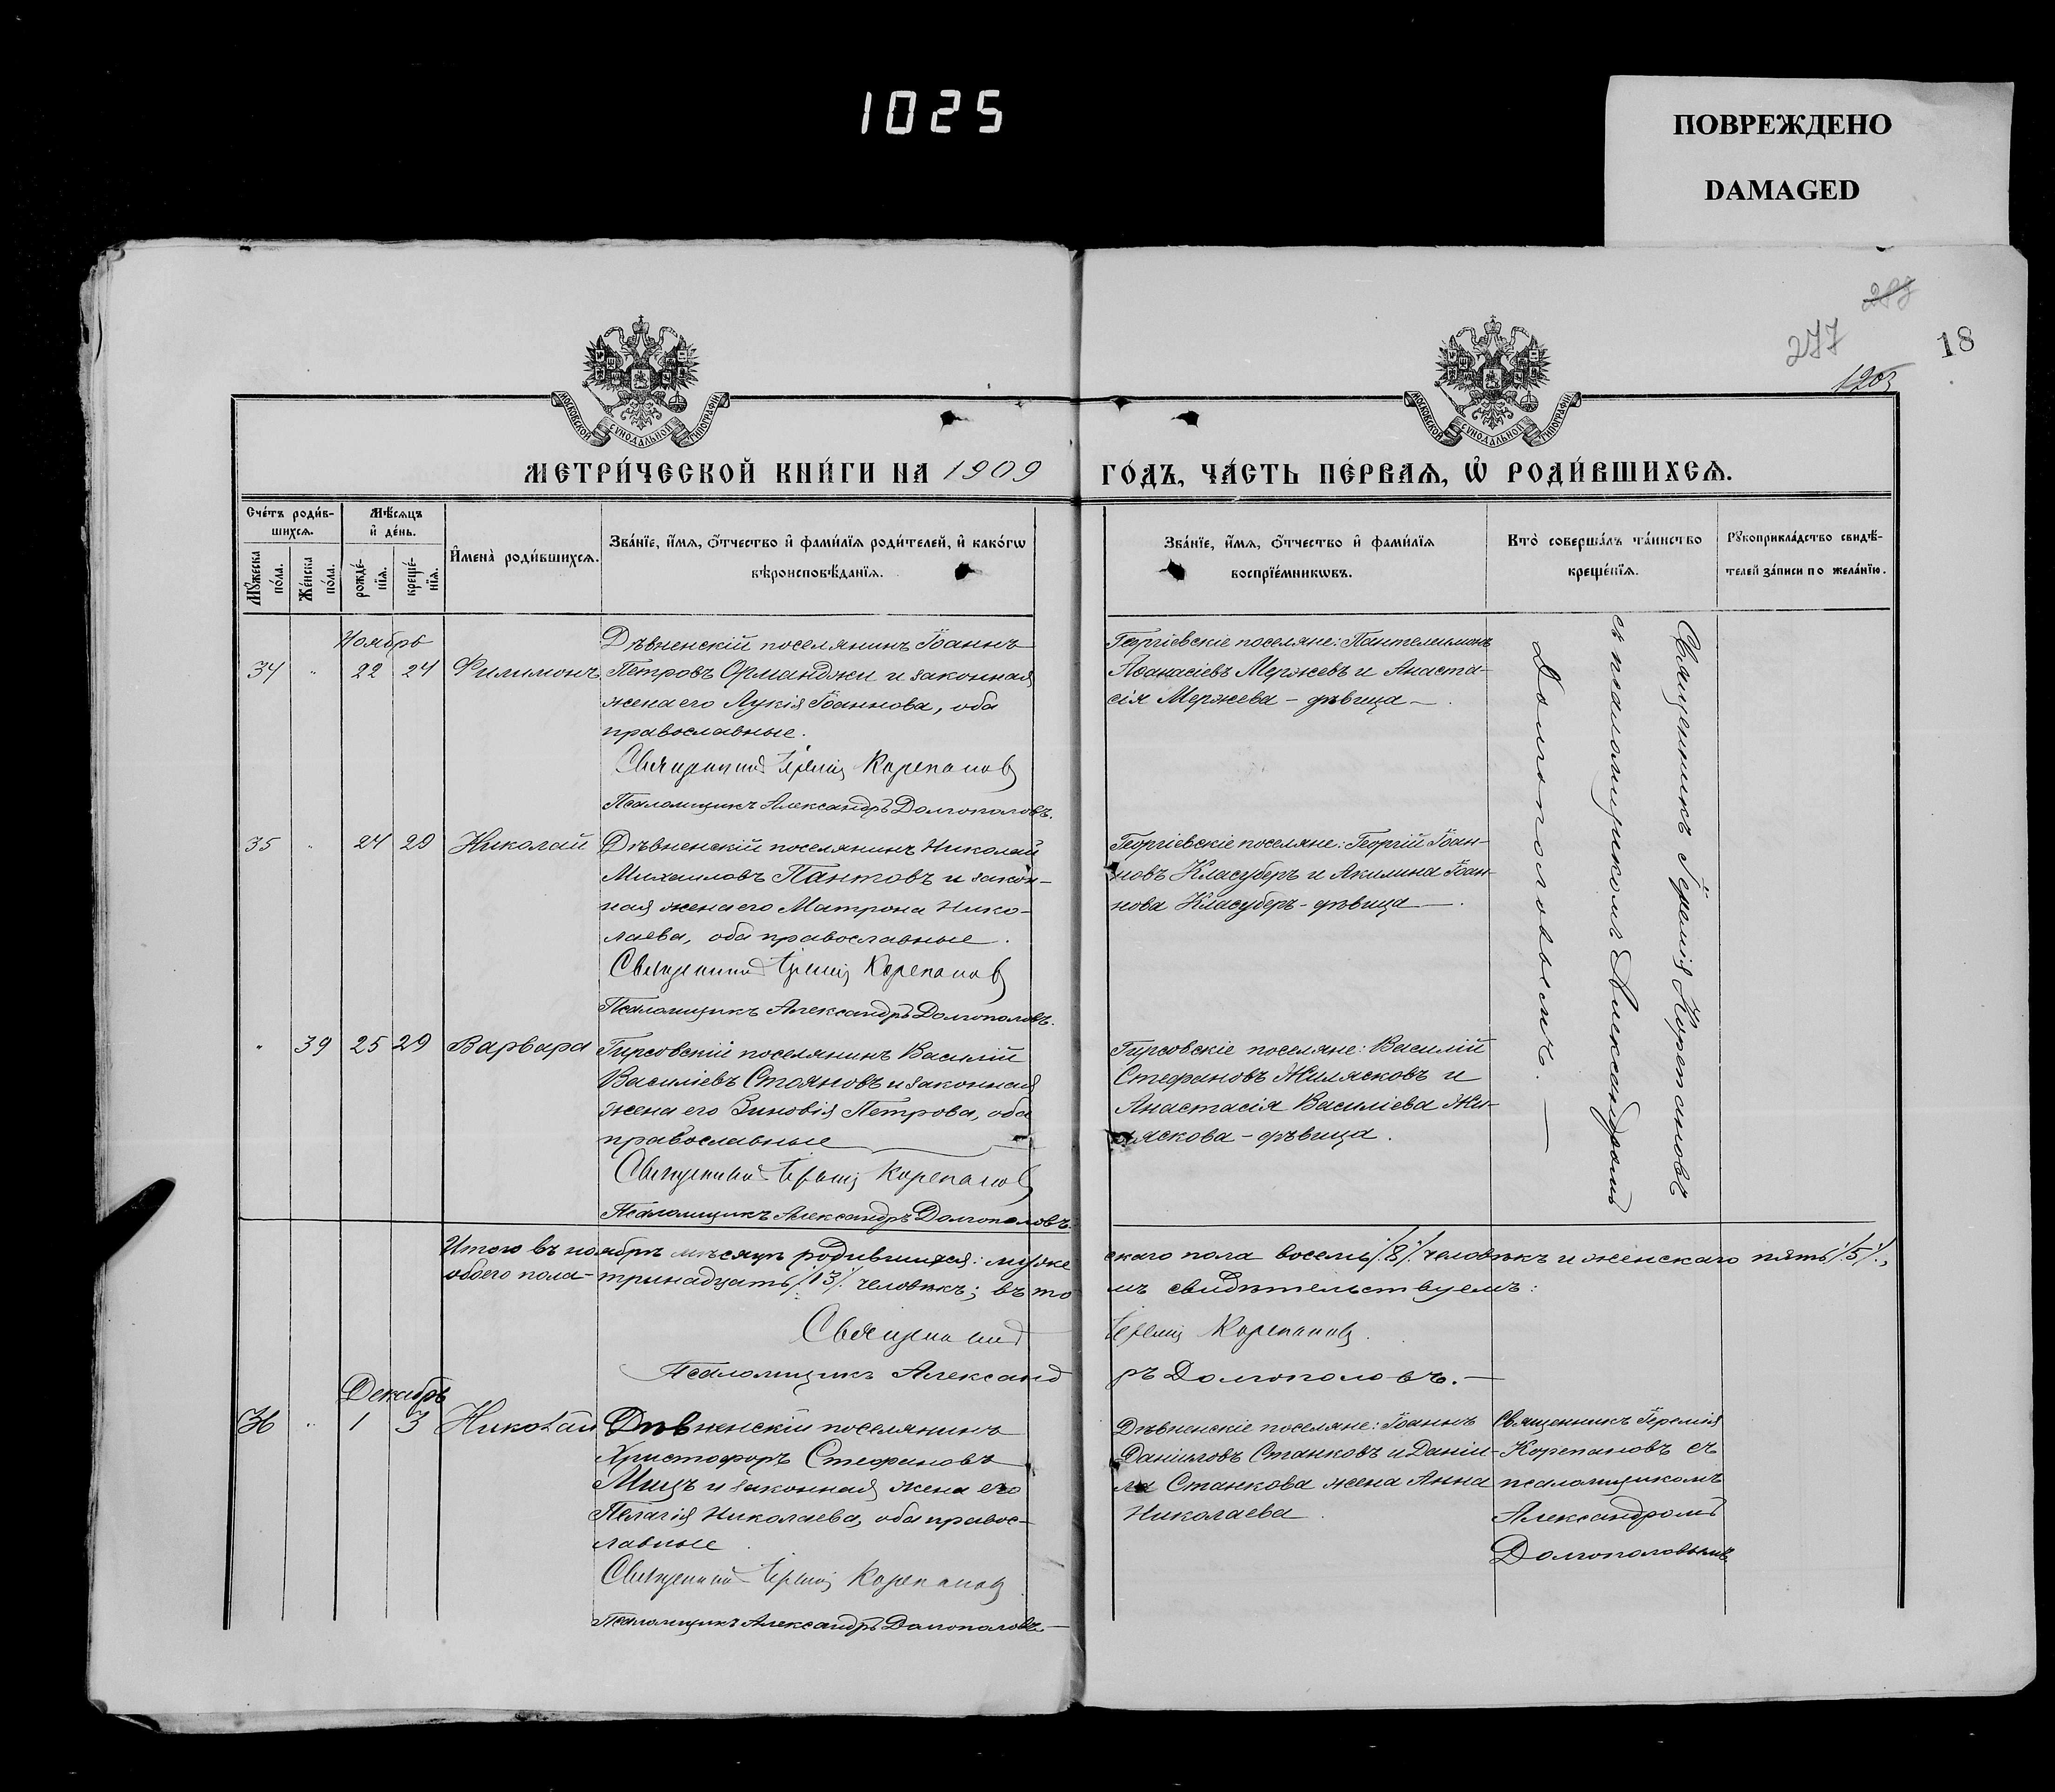 1025
ПОВРЕЖДЕНО
DAMAGED
277
18
МОСКОВСКОЙ СУНОДАЛЬНОЙ ТИПОГРАФІИ
МОСКОВСКОЙ СУНОДАЛЬНОЙ ТИПОГРАФІИ
МЕТРИ́ЧЕСКОЙ КНИ́ГИ НА 1909
ГО́ДЪ, ЧА́СТЬ ПЕ́РВАѦ, Ѡ҆ РОДИ́ВШИХСѦ.
Сче́тъ роди́в-
шихсѧ.
Мꙋ́жеска по́ла.
Же́нска по́ла.
Мѣ́сѧцъ
и҆ де́нь.
рожде́-
нїѧ.
креще́-
нїѧ.
И҆мена̀ роди́вшихсѧ.
Зва́нїе, и҆́мѧ, ѻ҆́тчество и҆ фами́лїѧ роди́телей, и҆ како́гѡ
вѣроисповѣ́данїѧ.
Зва́нїе, и҆́мѧ, ѻ҆́тчество и҆ фами́лїѧ
воспрїе́мникѡвъ.
Кто̀ соверша́лъ та́инство
креще́нїѧ.
Рꙋкоприкла́дство свидѣ́-
телей за́писи по жела́нїю.
Ноябрь
34 " 22 24 Филимонъ
Дѣвненскій поселянинъ Іоаннъ
Петровъ Орманджи и законная
жена его Лукія Іоаннова, оба
православные.
Священникъ Іеремія Корепановъ
Псаломщикъ Александръ Долгополовъ.
Георгіевскіе поселяне: Пантелеимонъ
Аѳанасіевъ Мержевъ и Анаста-
сія Мержева - дѣвица -.
Священникъ Іеремія Корепановъ
съ псаломщикомъ Александромъ
Долгополовымъ. —
35 " 24 29 Николай
Дѣвненскій поселянинъ Николай
Михаиловъ Пантовъ и закон-
ная жена его Матрона Нико-
лаева, оба православные.
Священникъ Іеремія Корепановъ
Псаломщикъ Александръ Долгополовъ.
Георгіевскіе поселяне: Георгій Іоан-
новъ Класуберъ и Акилина Іоан-
нова Класуберъ - дѣвица —.
" 39 25 29 Варвара
Гирсовскій поселянинъ Василій
Василіевъ Стояновъ и законная
жена его Зиновія Петрова, оба
православные
Священникъ Іеремія Корепановъ
Псаломщикъ Александръ Долгополовъ.
Гирсовскіе поселяне: Василій
Стефановъ Жилясковъ и
Анастасія Василіева Жи-
ляскова - дѣвица.
Итого въ ноябрѣ мѣсяцѣ родившихся: муже
скаго пола восемь /8/ человѣкъ и женскаго пять /5/,
обоего пола - тринадцать /13/ человѣкъ; въ то
мъ свидѣтельствуемъ:
Священникъ
Іеремія Корепановъ.
Псаломщикъ Александ
ръ Долгополовъ. —
Декабрь
36 " 1 3 Николай
Дѣвненскій поселянинъ
Христофоръ Стефановъ
Мицъ и законная жена его
Пелагія Николаева, оба правос-
лавные.
Священникъ Іеремія Корепановъ
Псаломщикъ Александръ Долгополовъ. —
Дѣвненскіе поселяне: Іоаннъ
Даніиловъ Станковъ и Даніи-
ла Станкова жена Анна
Николаева.
Священникъ Іеремія
Корепановъ съ
псаломщикомъ
Александромъ
Долгополовымъ